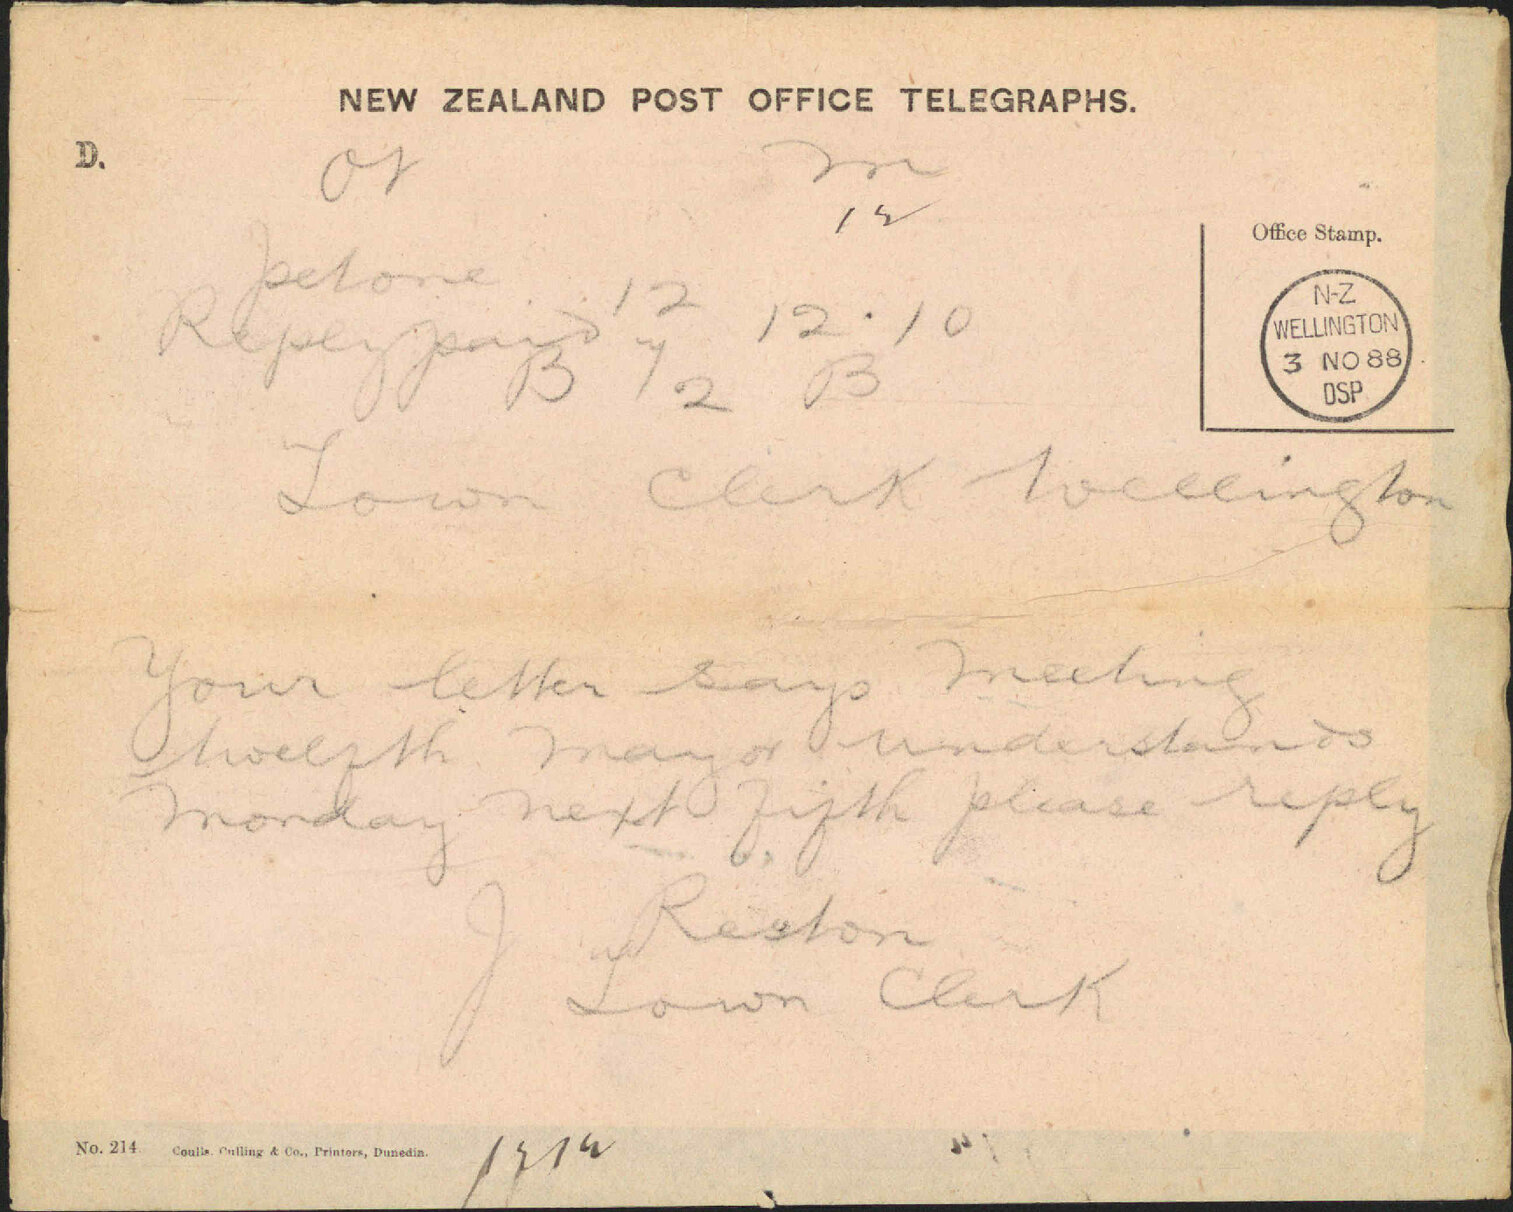 NEW ZEALAND POST OFFICE TELEGRAPHS.
D.
m
12
Office Stamp.
Petone
12
Reply paid
12.10
B
2
B
N-Z
WELLINGTON
3 NO 88
DSP
Town Clerk Wellington
Your letter says meeting
twelfth mayor understands
monday next fifth please reply
J Reston
Town Clerk
No. 214
Coulls, Culling & Co., Printers, Dunedin.